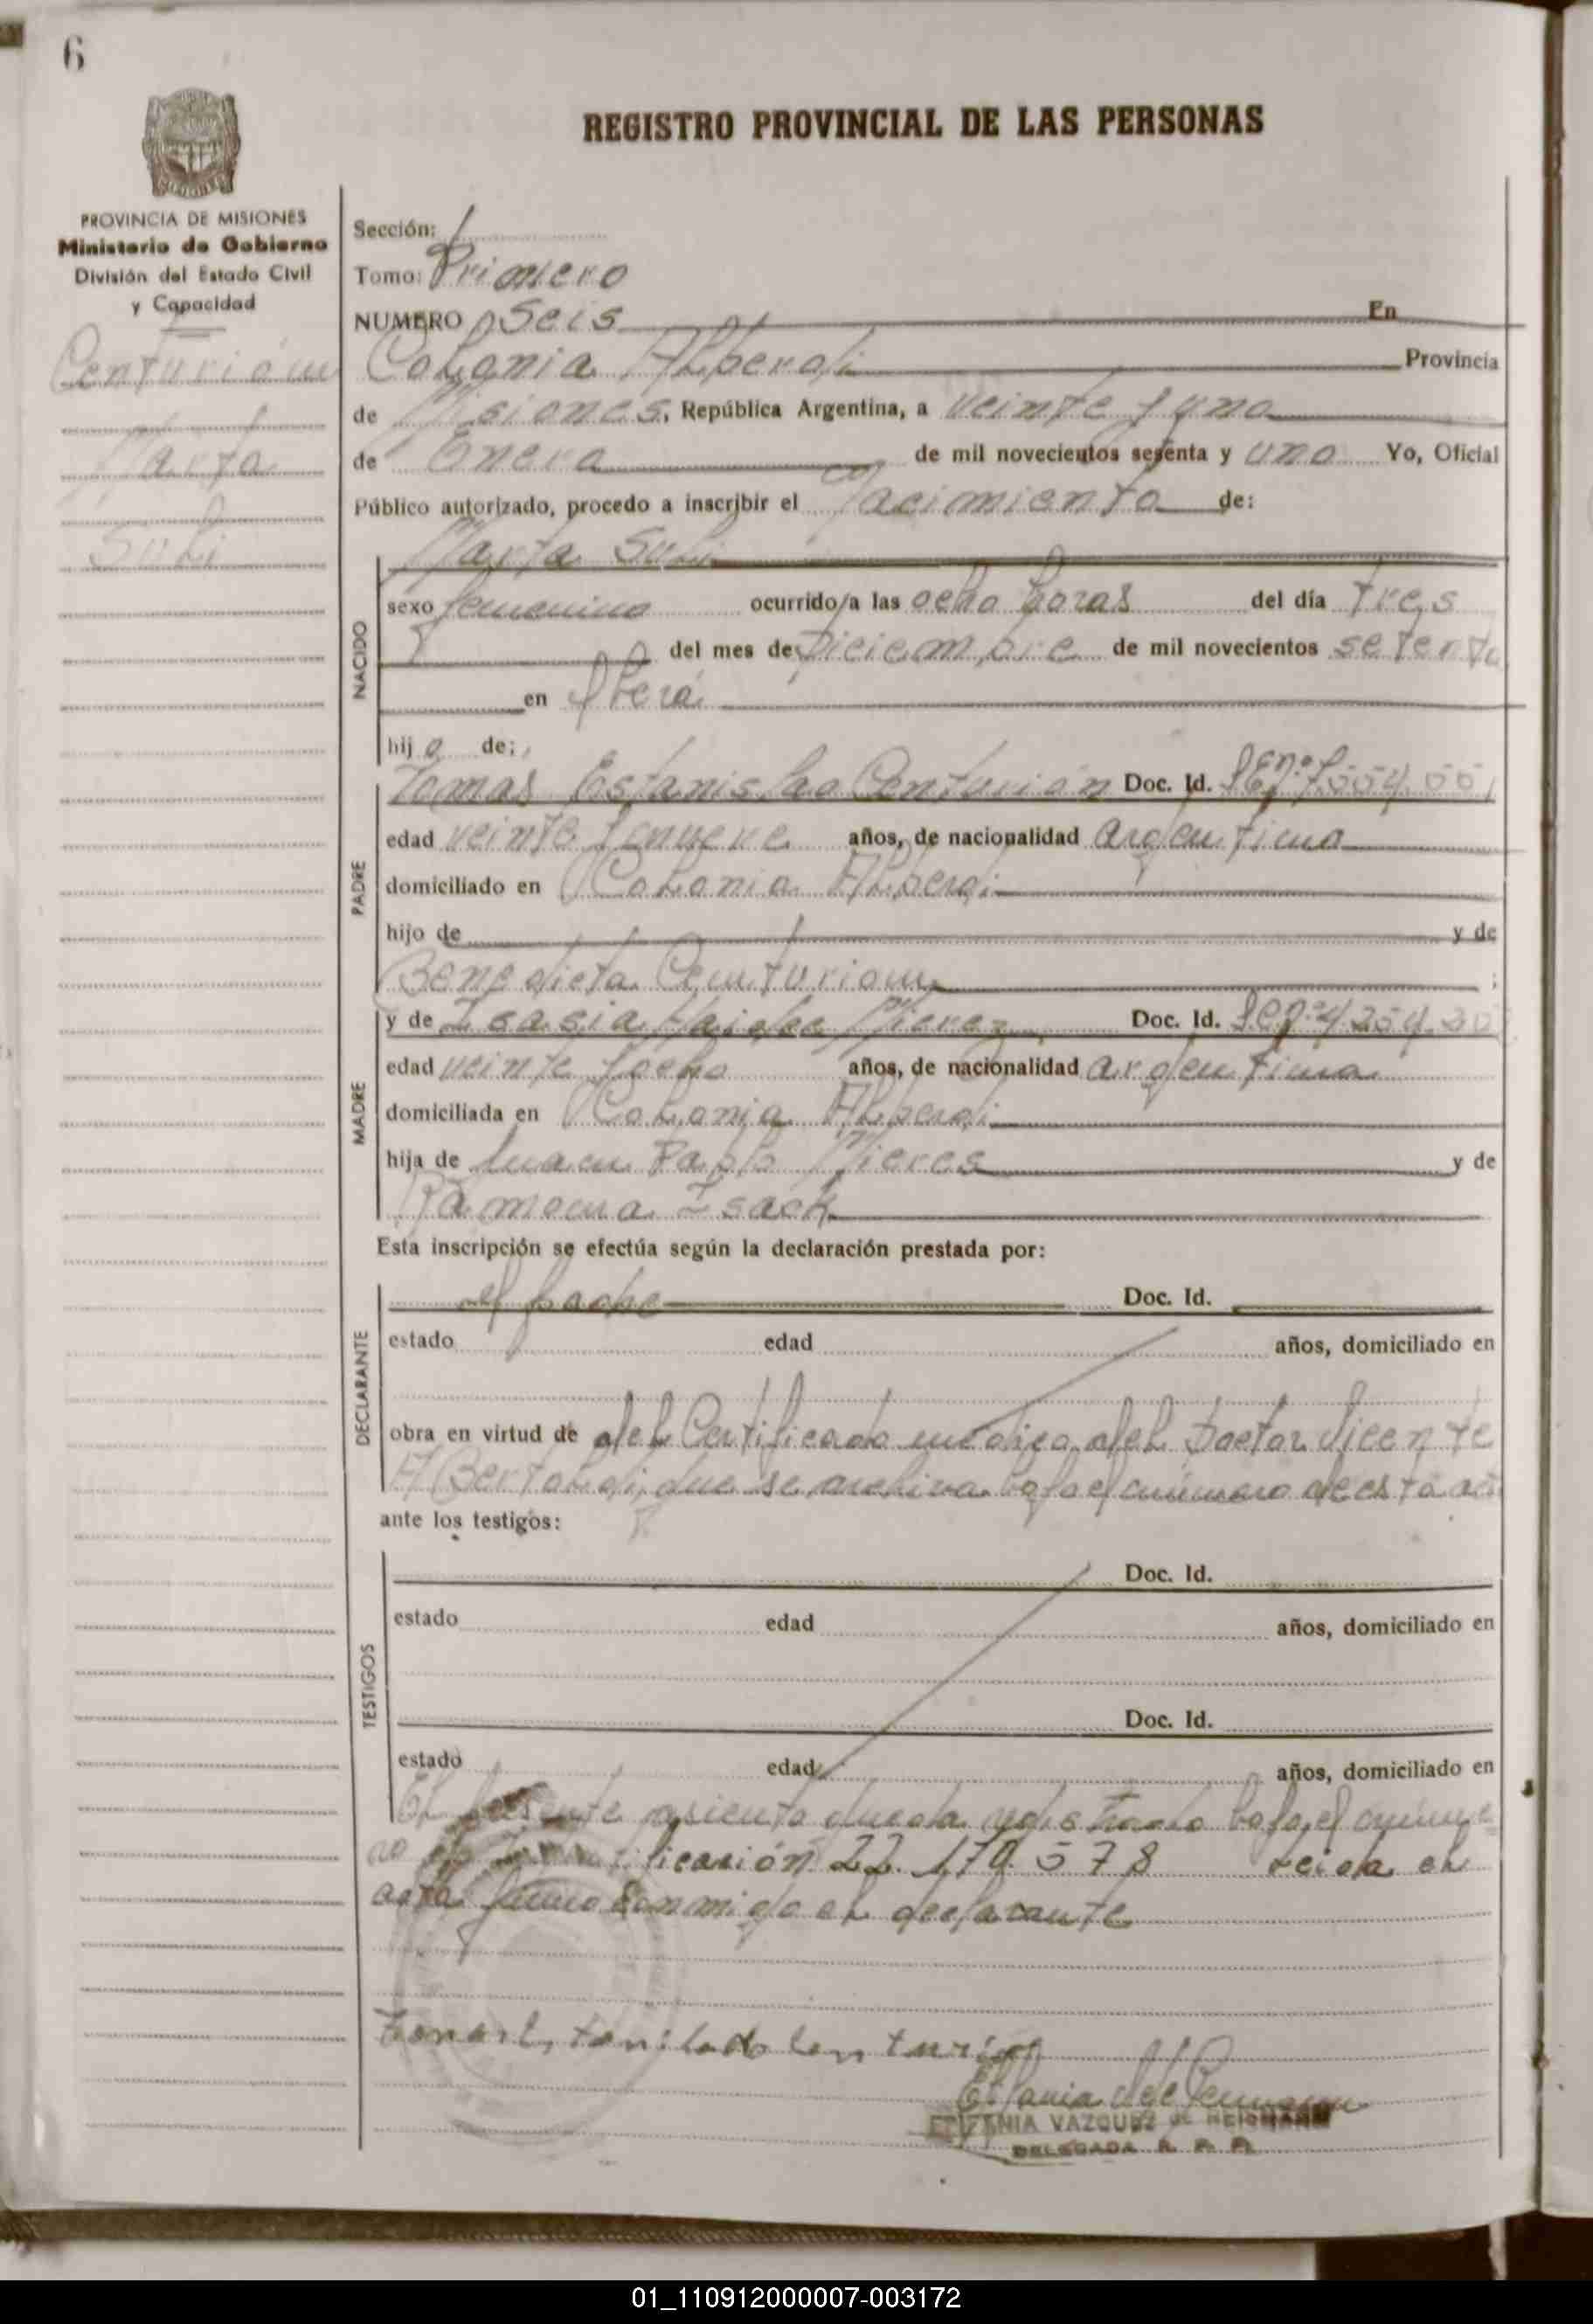 6
REGISTRO PROVINCIAL DE LAS PERSONAS
PROVINCIA DE MISIONES
Ministerio de Gobierno
División del Estado Civil
y Capacidad
Centurión
Marta
Suli
Sección:
Tomo: Primero
NUMERO Seis En
Colonia Alberdi Provincia
de Misiones, República Argentina, a veinte y uno
de Enero de mil novecientos setenta y uno Yo, Oficial
Público autorizado, procedo a inscribir el Nacimiento de:
Marta Suli
NACIDO
sexo femenino ocurrido/a las ocho horas del día tres
del mes de Diciembre de mil novecientos setenta
en Oberá
hija de:
PADRE
Tomas Estanislao Centurión Doc. Id.
edad veinte y nueve años, de nacionalidad argentina
domiciliado en Colonia Alberdi
hijo de y de
Benedicta Centurion
MADRE
y de Doc. Id.
edad veinte y ocho años, de nacionalidad argentina
domiciliada en Colonia Alberdi
hija de Juan Pablo Mieres y de
Ramona
Esta inscripción se efectúa según la declaración prestada por:
DECLARANTE
el padre Doc. Id.
estado edad años, domiciliado en
obra en virtud de del Certificado medico del Doctor Vicente
A Bertoldi, que se archiva bajo el número de esta
ante los testigos:
TESTIGOS
Doc. Id.
estado edad años, domiciliado en
Doc. Id.
estado edad años, domiciliado en
El presente asiento queda registrado bajo el núme
ro de Identificación 22.170.578 Leida el
acta firmo conmigo el declarante
EPIFANIA VAZQUEZ de
DELEGADA R. P. P.
01_110912000007-003172